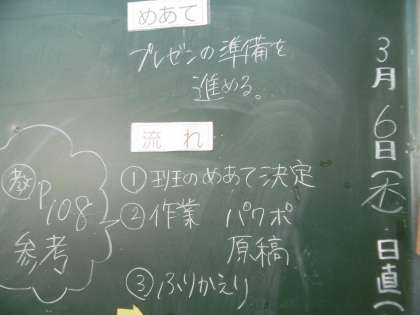 めあて
プレゼンの準備を
進める。
流れ
①班のめあて決定
②作業 パワポ
原稿
③ふりかえり
教P108
参考
3月6日(木)日直(